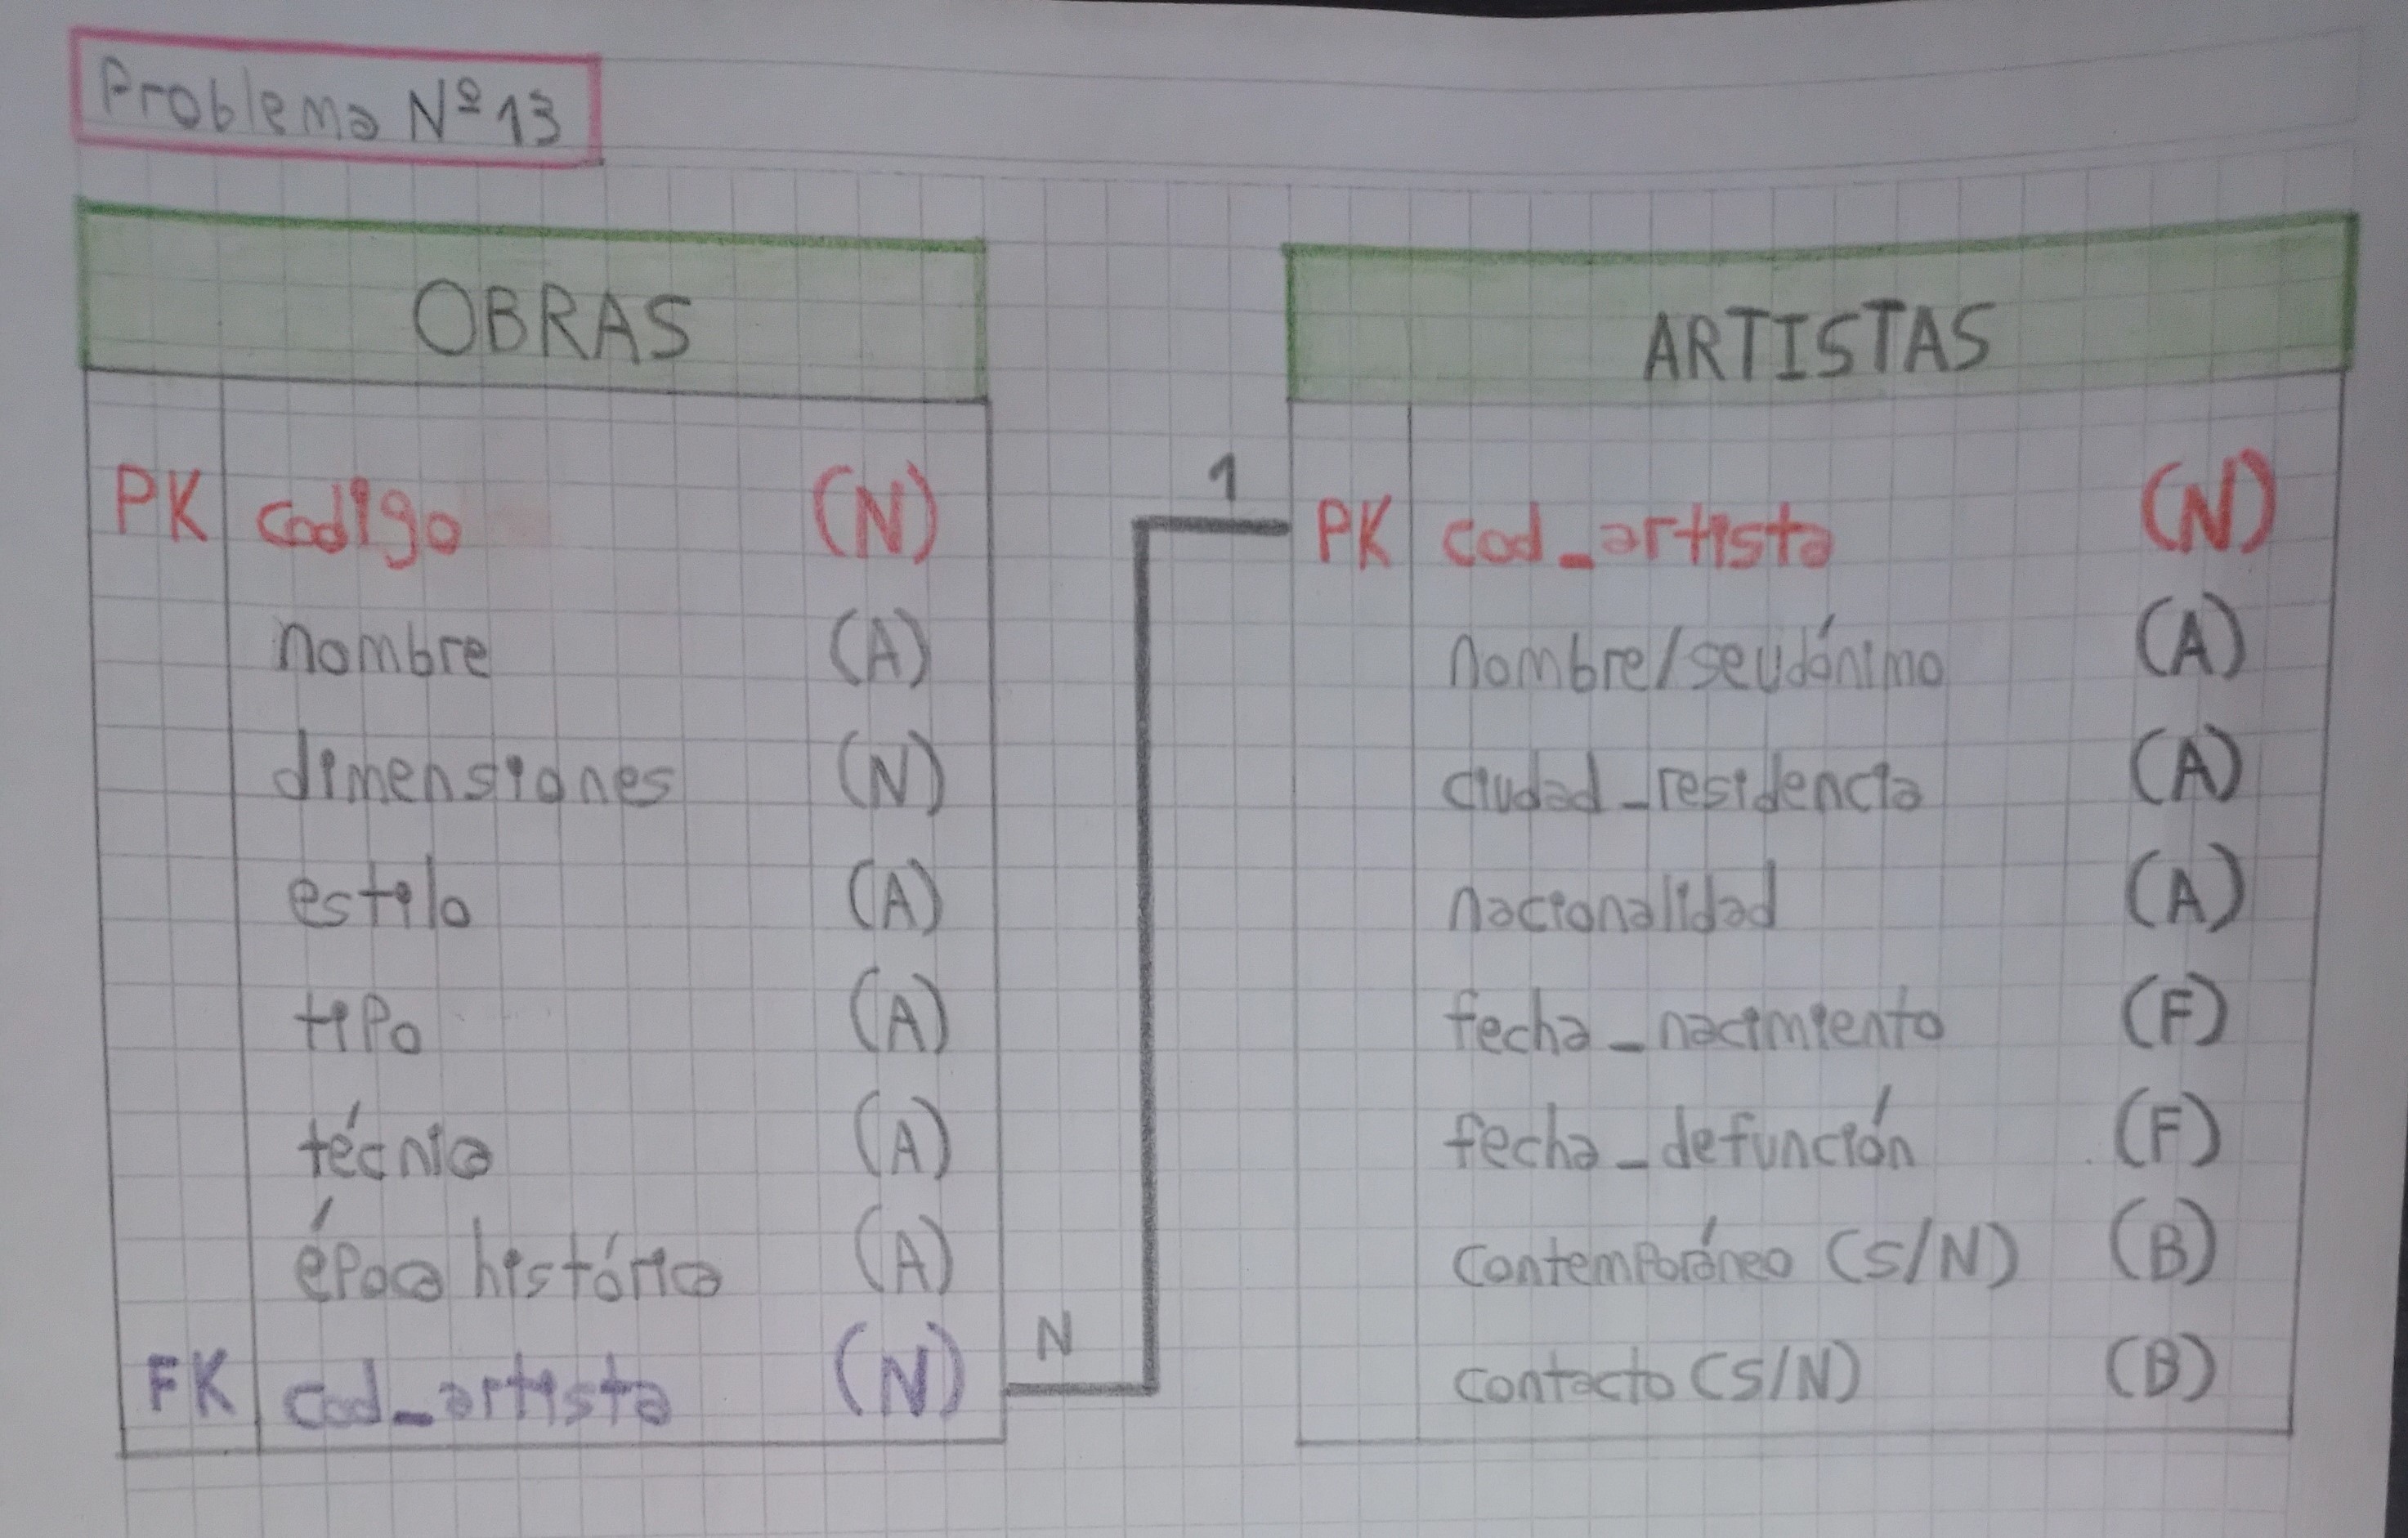 Problema Nº 13
OBRAS
PK codigo (N)
nombre (A)
dimensiones (N)
estilo (A)
tipo (A)
técnica (A)
época histórica (A)
FK cod_artista (N)
N
1
ARTISTAS
PK cod_artista (N)
nombre/seudónimo (A)
ciudad_residencia (A)
nacionalidad (A)
fecha_nacimiento (F)
fecha_defunción (F)
contemporáneo (S/N) (B)
contacto (S/N) (B)